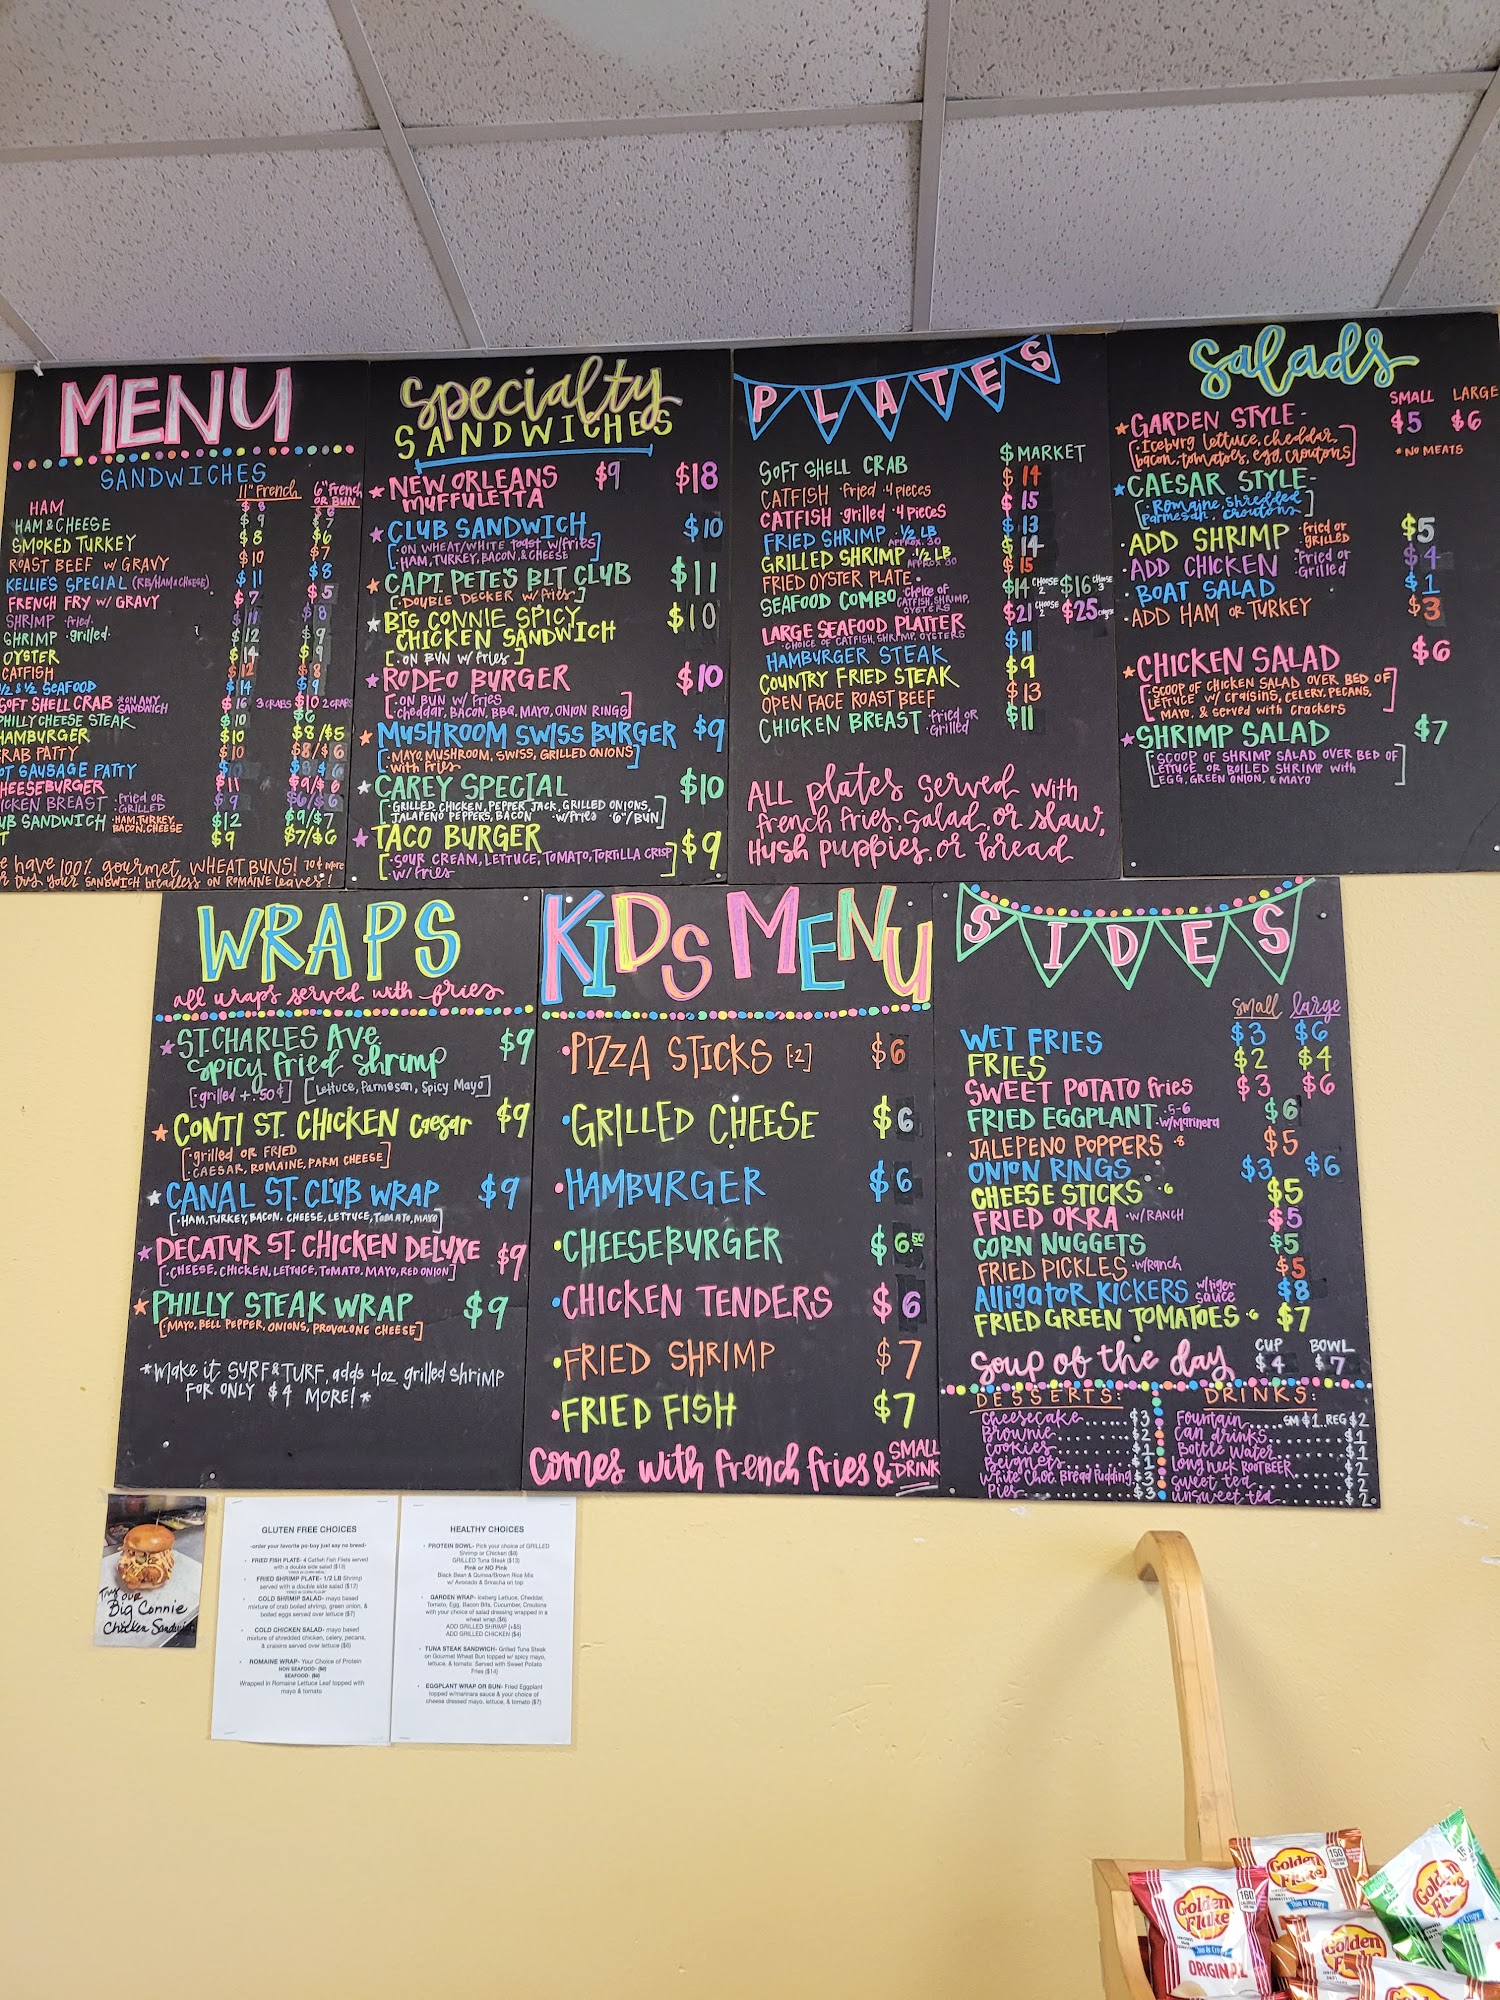 MENU
SANDWICHES
11" French 6" French OR BUN
HAM $8 $6
HAM & CHEESE $9 $7
SMOKED TURKEY $8 $6
ROAST BEEF w/ GRAVY $10 $7
KELLIE'S SPECIAL (RB/HAM & CHEESE) $11 $8
FRENCH FRY w/ GRAVY $7 $5
SHRIMP ·fried· $11 $8
SHRIMP ·grilled· $12 $9
OYSTER $14 $9
CATFISH $12 $8
1/2 & 1/2 SEAFOOD $14 $9
SOFT SHELL CRAB *ON ANY SANDWICH $16 3 CRABS $10 2 CRABS
PHILLY CHEESE STEAK $10 $6
HAMBURGER $10 $8/$5
CRAB PATTY $10 $8/$6
OT SAUSAGE PATTY
HEESEBURGER $11 $9/$6
ICKEN BREAST ·fried or ·GRILLED $9 $6/$6
UB SANDWICH ·HAM, TURKEY, BACON, CHEESE $12 $9/$7
T $9 $7/$6
e have 100% gourmet WHEAT BUNS! 70¢ more
r try your SANDWICH breadless on ROMAINE leaves!
Specialty
SANDWICHES
NEW ORLEANS MUFFULETTA $9 $18
CLUB SANDWICH $10
[·ON WHEAT/WHITE toast w/fries
·HAM, TURKEY, BACON, & CHEESE]
CAPT. PETE'S BLT CLUB $11
[·DOUBLE DECKER w/ fries·]
BIG CONNIE SPICY
CHICKEN SANDWICH $10
[·ON BUN w/ fries]
RODEO BURGER $10
[·ON BUN w/ fries
·cheddar, BACON, BBQ, MAYO, ONION RINGS]
MUSHROOM SWISS BURGER $9
[·MAYO, MUSHROOM, SWISS, GRILLED ONIONS
·with fries]
CAREY SPECIAL $10
[·GRILLED CHICKEN, PEPPER JACK, GRILLED ONIONS,
JALAPENO PEPPERS, BACON ·w/fries ·6"/BUN]
TACO BURGER $9
[·SOUR CREAM, LETTUCE, TOMATO, TORTILLA CRISP]
w/ fries
PLATES
SOFT SHELL CRAB $ MARKET
CATFISH ·fried ·4 pieces $14
CATFISH ·grilled ·4 pieces $15
FRIED SHRIMP ·1/2 LB APPROX. 30 $13
GRILLED SHRIMP ·1/2 LB APPROX 30 $14
FRIED OYSTER PLATE· $15
SEAFOOD COMBO ·choice of CATFISH, SHRIMP, OYSTERS $14 CHOOSE 2 $16 CHOOSE 3
LARGE SEAFOOD PLATTER $21 CHOOSE 2 $25
·CHOICE OF CATFISH, SHRIMP, OYSTERS
HAMBURGER STEAK $11
COUNTRY FRIED STEAK $9
OPEN FACE ROAST BEEF $13
CHICKEN BREAST ·fried or ·Grilled $11
ALL plates served with
french fries, salad, or slaw,
Hush puppies, or bread
Salads
SMALL LARGE
GARDEN STYLE- $5 $6
[·Iceburg lettuce, cheddar,
bacon, tomatoes, egg, croutons]
*NO MEATS
CAESAR STYLE-
[·Romaine, shredded
parmesan, croutons]
·ADD SHRIMP ·fried or ·GRILLED $5
·ADD CHICKEN ·fried or ·Grilled $4
·BOAT SALAD $1
·ADD HAM or TURKEY $3
CHICKEN SALAD $6
[·SCOOP OF CHICKEN SALAD OVER BED OF
LETTUCE w/ CRAISINS, CELERY, PECANS,
MAYO, & served with crackers]
SHRIMP SALAD $7
[·SCOOP OF SHRIMP SALAD OVER BED OF
LETTUCE OR BOILED SHRIMP with
EGG, GREEN ONION, & MAYO]
WRAPS
all wraps served with fries
ST. CHARLES AVE. $9
spicy fried shrimp
[·grilled + .50¢] [Lettuce, Parmesan, Spicy Mayo]
CONTI ST. CHICKEN Caesar $9
[·grilled OR FRIED
·CAESAR, ROMAINE, PARM CHEESE]
CANAL ST. CLUB WRAP $9
[·HAM, TURKEY, BACON, CHEESE, LETTUCE, TOMATO, MAYO]
DECATUR ST. CHICKEN DELUXE $9
[·CHEESE, CHICKEN, LETTUCE, TOMATO, MAYO, RED ONION]
PHILLY STEAK WRAP $9
[·MAYO, BELL PEPPER, ONIONS, PROVOLONE CHEESE]
*Make it SURF & TURF, adds 4oz grilled shrimp
FOR ONLY $4 MORE!*
KIDS MENU
·PIZZA STICKS [·2] $6
·GRILLED CHEESE $6
·HAMBURGER $6
·CHEESEBURGER $6.50
·CHICKEN TENDERS $6
·FRIED SHRIMP $7
·FRIED FISH $7
Comes with French fries & SMALL DRINK
SIDES
small large
WET FRIES $3 $6
FRIES $2 $4
SWEET POTATO fries $3 $6
FRIED EGGPLANT ·5-6 w/Marinera $6
JALEPENO POPPERS ·8 $5
ONION RINGS $3 $6
CHEESE STICKS ·6 $5
FRIED OKRA ·W/RANCH $5
CORN NUGGETS $5
FRIED PICKLES ·w/Ranch $5
Alligator KICKERS w/tiger sauce $8
FRIED GREEN TOMATOES ·6 $7
Soup of the day CUP $4 BOWL $7
DESSERTS:
Cheesecake......$3
Brownie......$2
Cookies......$1
Beignets......$1
White Choc. Bread Pudding.$3
Pies......$3
DRINKS:
Fountain....SM $1. REG $2
Can drinks......$1
Bottle Water......$1
longneck ROOTBEER....$2
sweet tea......$2
unsweet tea......$2
Try our
Big Connie
Chicken Sandwich
GLUTEN FREE CHOICES
-order your favorite po-boy just say no bread-
• FRIED FISH PLATE- 4 Catfish Fish Filets served
with a double side salad ($13)
• FRIED SHRIMP PLATE- 1/2 LB Shrimp
served with a double side salad ($12)
• COLD SHRIMP SALAD- mayo based
mixture of crab boiled shrimp, green onion, &
boiled eggs served over lettuce ($7)
• COLD CHICKEN SALAD- mayo based
mixture of shredded chicken, celery, pecans,
& craisins served over lettuce ($6)
• ROMAINE WRAP- Your Choice of Protein
NON SEAFOOD-
SEAFOOD-
Wrapped in Romaine Lettuce Leaf topped with
mayo & tomato
HEALTHY CHOICES
• PROTEIN BOWL- Pick your choice of GRILLED
Shrimp or Chicken ($8)
GRILLED Tuna Steak ($13)
Pink or NO Pink
Black Bean & Quinoa/Brown Rice Mix
w/ Avocado & Sriracha on top
• GARDEN WRAP- Iceberg Lettuce, Cheddar,
Tomato, Egg, Bacon Bits, Cucumber, Croutons
with your choice of salad dressing wrapped in a
wheat wrap ($6)
ADD GRILLED SHRIMP (+$5)
ADD GRILLED CHICKEN ($4)
• TUNA STEAK SANDWICH- Grilled Tuna Steak
on Gourmet Wheat Bun topped w/ spicy mayo,
lettuce, & tomato. Served with Sweet Potato
Fries ($14)
• EGGPLANT WRAP OR BUN- Fried Eggplant
topped w/marinara sauce & your choice of
cheese dressed mayo, lettuce, & tomato ($7)
Golden Flake
Thin & Crispy
ORIGINAL
160
Golden Flake
Thin & Crispy
150
Golden Flake
Golden Flake
Golden